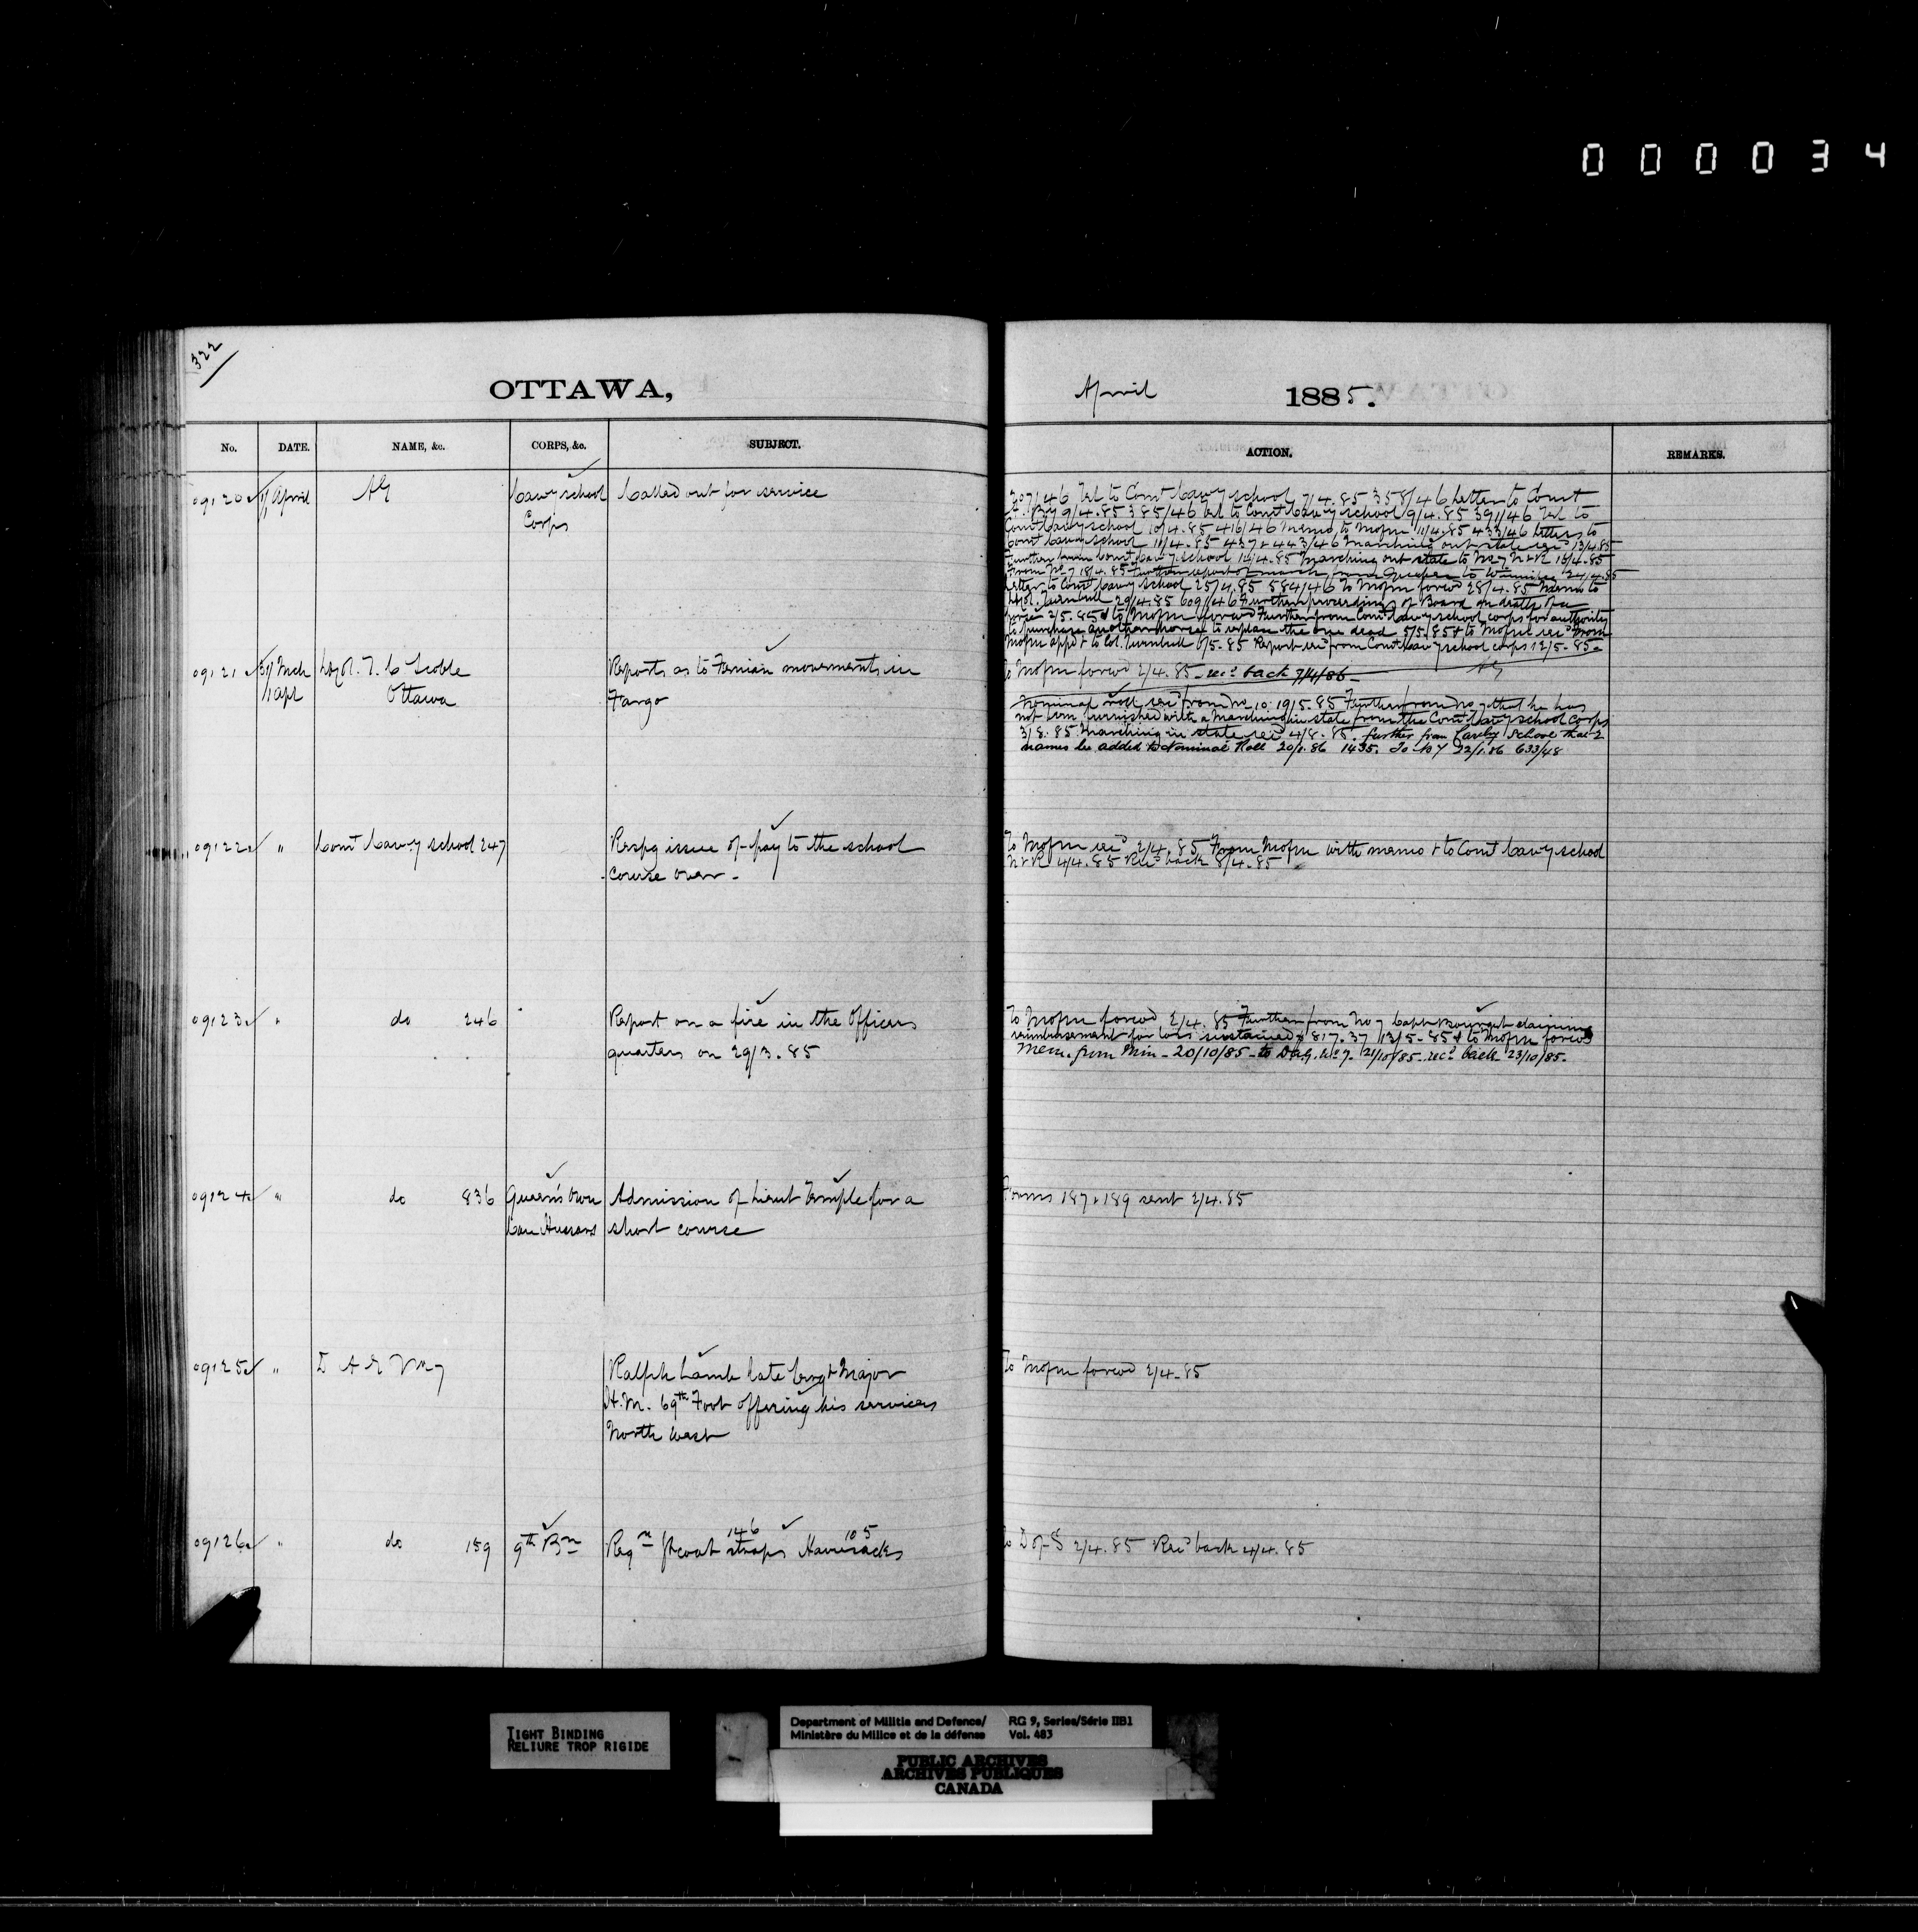 000034
322
OTTAWA,
April 1885.
No. DATE. NAME, &c. CORPS, &c. SUBJECT.
ACTION. REMARKS.
09120 1 April AG Cavy school Called out for service
Corps
207/46 Tel to Comt Cavy school 7/4.85 358/46 Letter to Comt
9/4.85 385/46 Tel to Comt Cavy school 9/4.85 391/46 Tel to
Comt Cavy school 10/4.85 416/46 Memo to Mofm 11/4.85 433/46 Letters to
Comt Cavy school 11/4.85 437 & 443/46 Marching out state recd 13/4.85
Further from Comt Cavy school Marching out state to No 7
From No 7 18/4.85 Further report of march from Quebec to Winnipeg 24/4.85
Letter to Comt Cavy school 25/4.85 584/46 To Mofm forwd 28/4.85 Memo to
Lt Col. Turnbull 29/4.85 609/46 Further proceedings of Board on death of a
horse 2/5.85 & to Mofm forwd Further from Comt Cavy school corps for authority
to purchase another horse to replace the one dead 5/5.85 & to Mofm recd from
Mofm appd & to Col. Turnbull 6/5.85 Report recd from Comt Cavy school corps 12/5.85
09121 31 Mch Reports as to Fenian movements in
1 Apl Ottawa Fargo
To Mofm forwd 2/4.85 recd back 7/4/86 AG
Nominal roll recd from No 10. 19/5.85 Further from No 7 that he has
not been furnished with a marching in state from the Comt Cavy school corps
3/8.85 Marching in state recd 4/8.85. further from Cavly School that 2
names be added to Nominal Roll 20/1.86 1435. Do to 7 22/1.86 633/48
09122 " Comt Cavy school 247 Respg issue of pay to the school
course over
To Mofm recd 2/4.85 From Mofm with memo & to Comt Cavy school
4/4.85 Recd back 8/4.85
09123 " do 246 Report on a fire in the Officers
quarters on 29/3.85
To Mofm forwd 2/4.85 Further from No 7 Capt claiming
reimbursement for loss sustained $817.37 13/5.85 & to Mofm forwd
Mem. from Min - 20/10/85 - to DAG. No 7. 21/10/85 - recd back 23/10/85.
09124 " do 836 Queen's Own Admission of Lieut Temple for a
Can Hussars short course
Forms 187 & 189 sent 2/4.85
09125 " D A G No 7 Ralph Lamb late Sergt Major
H.M. 69th Foot offering his services
North West
To Mofm forwd 2/4.85
09126 " do 159 9th Bn Reqn Gt coat straps 146 Haversacks 105
To D of S 2/4.85 Recd back 4/4.85
TIGHT BINDING
RELIURE TROP RIGIDE
Department of Militia and Defence/ RG 9, Series/Série IIB1
Ministère du Milice et de la défense Vol. 483
PUBLIC ARCHIVES
ARCHIVES PUBLIQUES
CANADA